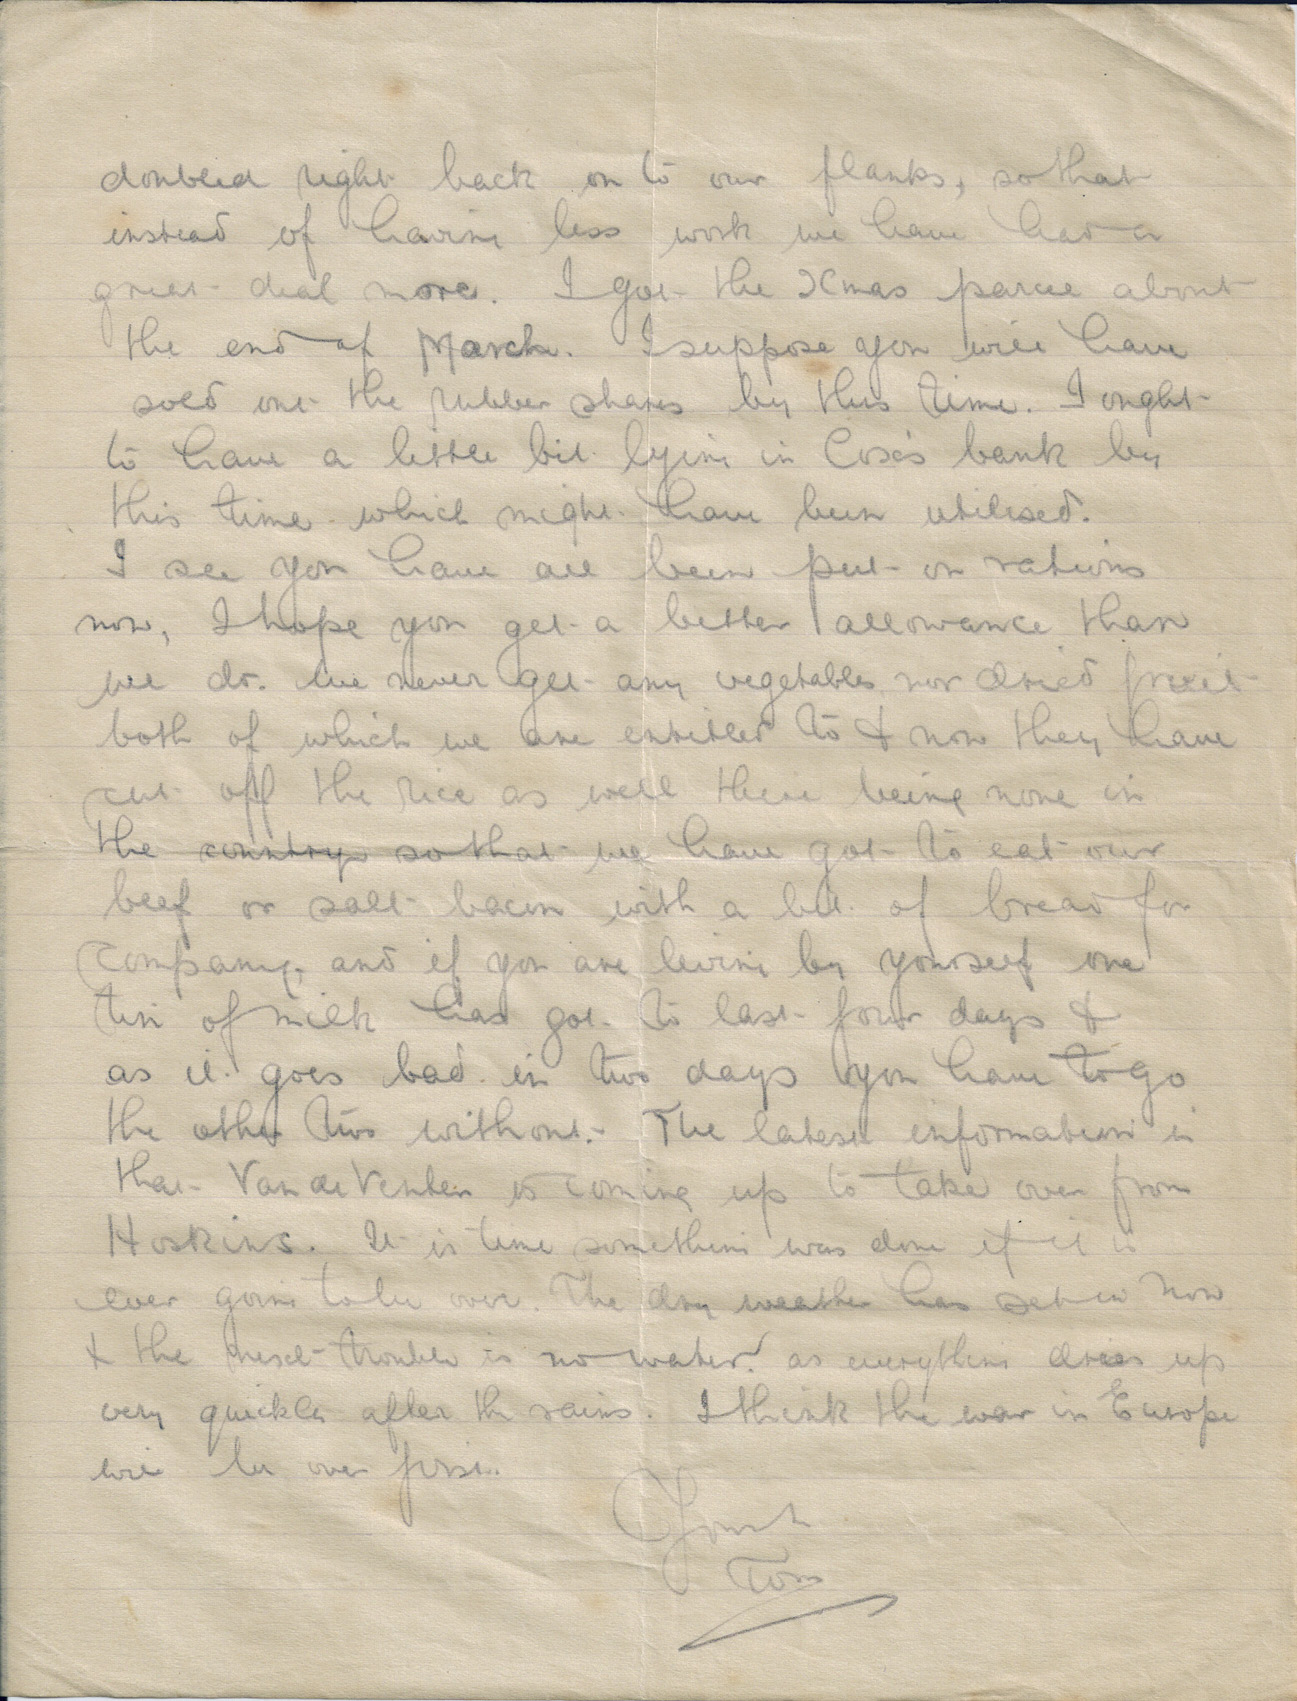 doubled right back on to our flanks, so that
instead of having less work we have had a
great deal more. I got the Xmas parcel about
the end of March. I suppose you will have
sold out the rubber shares by this time. I ought
to have a little bit lying in Cox's bank by
this time which might have been utilised.
I see you have all been put on rations
now, I hope you get a better allowance than
we do. We never get any vegetables nor dried fruit
both of which we are entitled to & now they have
cut off the rice as well there being none in
the country so that we have got to eat our
beef or salt bacon with a bit of bread for
company, and if you are living by yourself one
tin of milk has got to last four days &
as it goes bad in two days you have to go
the other two without. The latest information is
that Van de Venter is coming up to take over from
Hoskins. It is time something was done if it is
ever going to be over. The dry weather has set in now
& the next trouble is no water. as everything dries up
very quickly after the rains. I think the war in Europe
will be over first.
Yours
Tom